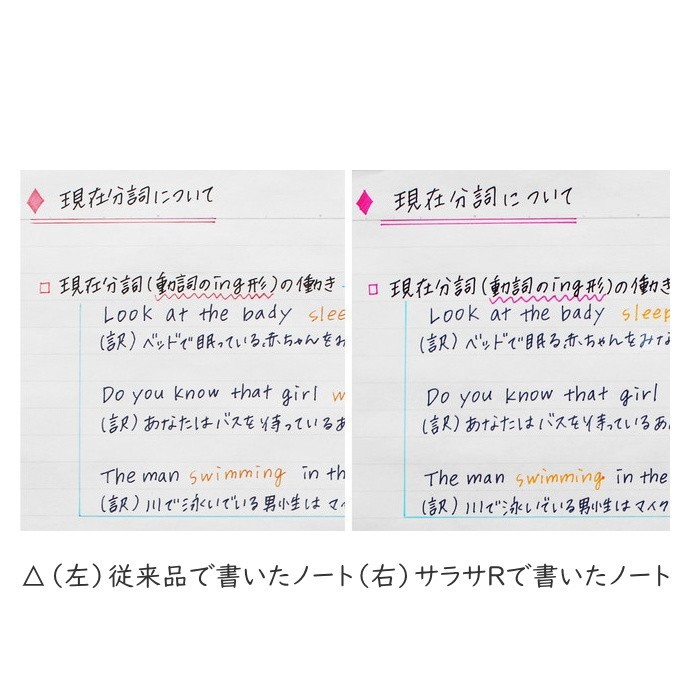 現在分詞について
現在分詞(動詞のing形)の働き
Look at the bady slee
(訳)ベッドで眠っている赤ちゃんをみ
Do you know that girl w
(訳)あなたはバスを待っているあ
The man swimming in th
(訳)川で泳いでいる男小生は マイ
現在分詞について
現在分詞(動詞のing形)の働き
Look at the bady sleep
(訳)ベッドで眠る赤ちゃんをみな
Do you know that girl
(訳)あなたはバスを待っているあ
The man swimming in the
(訳)川で泳いでいる男小生は マイク
△(左)従来品で書いたノート(右)サラサRで書いたノート